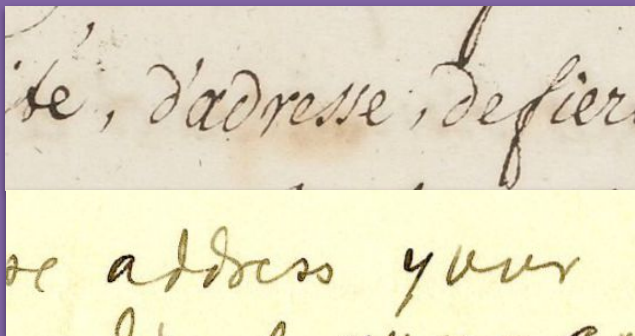 té, d'adresse, de fier
se address your